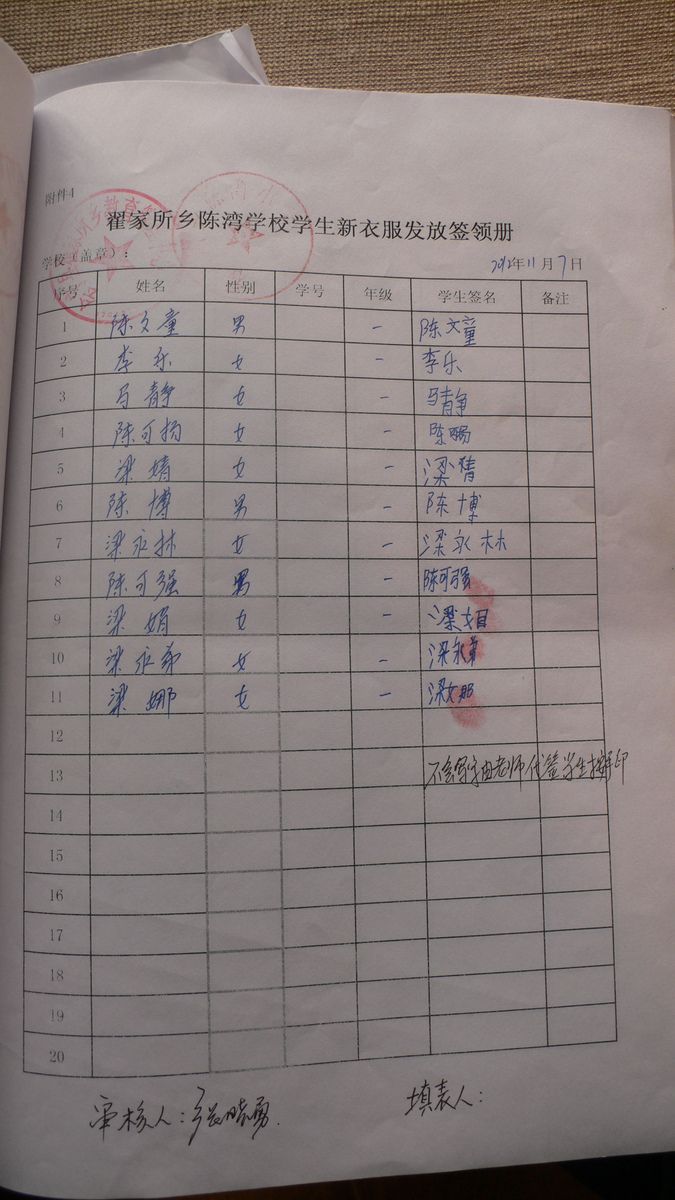 附件4
翟家所乡陈湾学校学生新衣服发放签领册
学校（盖章）： 2012年11月7日
序号 姓名 性别 学号 年级 学生签名 备注
1 陈文童 男 一 陈文童
2 李乐 女 一 李乐
3 马静 女 一 马静
4 陈可扬 女 一 陈
5 梁婧 女 一 梁婧
6 陈博 男 一 陈博
7 梁永林 女 一 梁永林
8 陈可强 男 一 陈可强
9 梁娟 女 一 梁娟
10 梁永弟 女 一 梁永弟
11 梁娜 女 一 梁娜
12
13 不会写字由老师代签学生按手印
14
15
16
17
18
19
20
审核人：张晓勇 填表人：